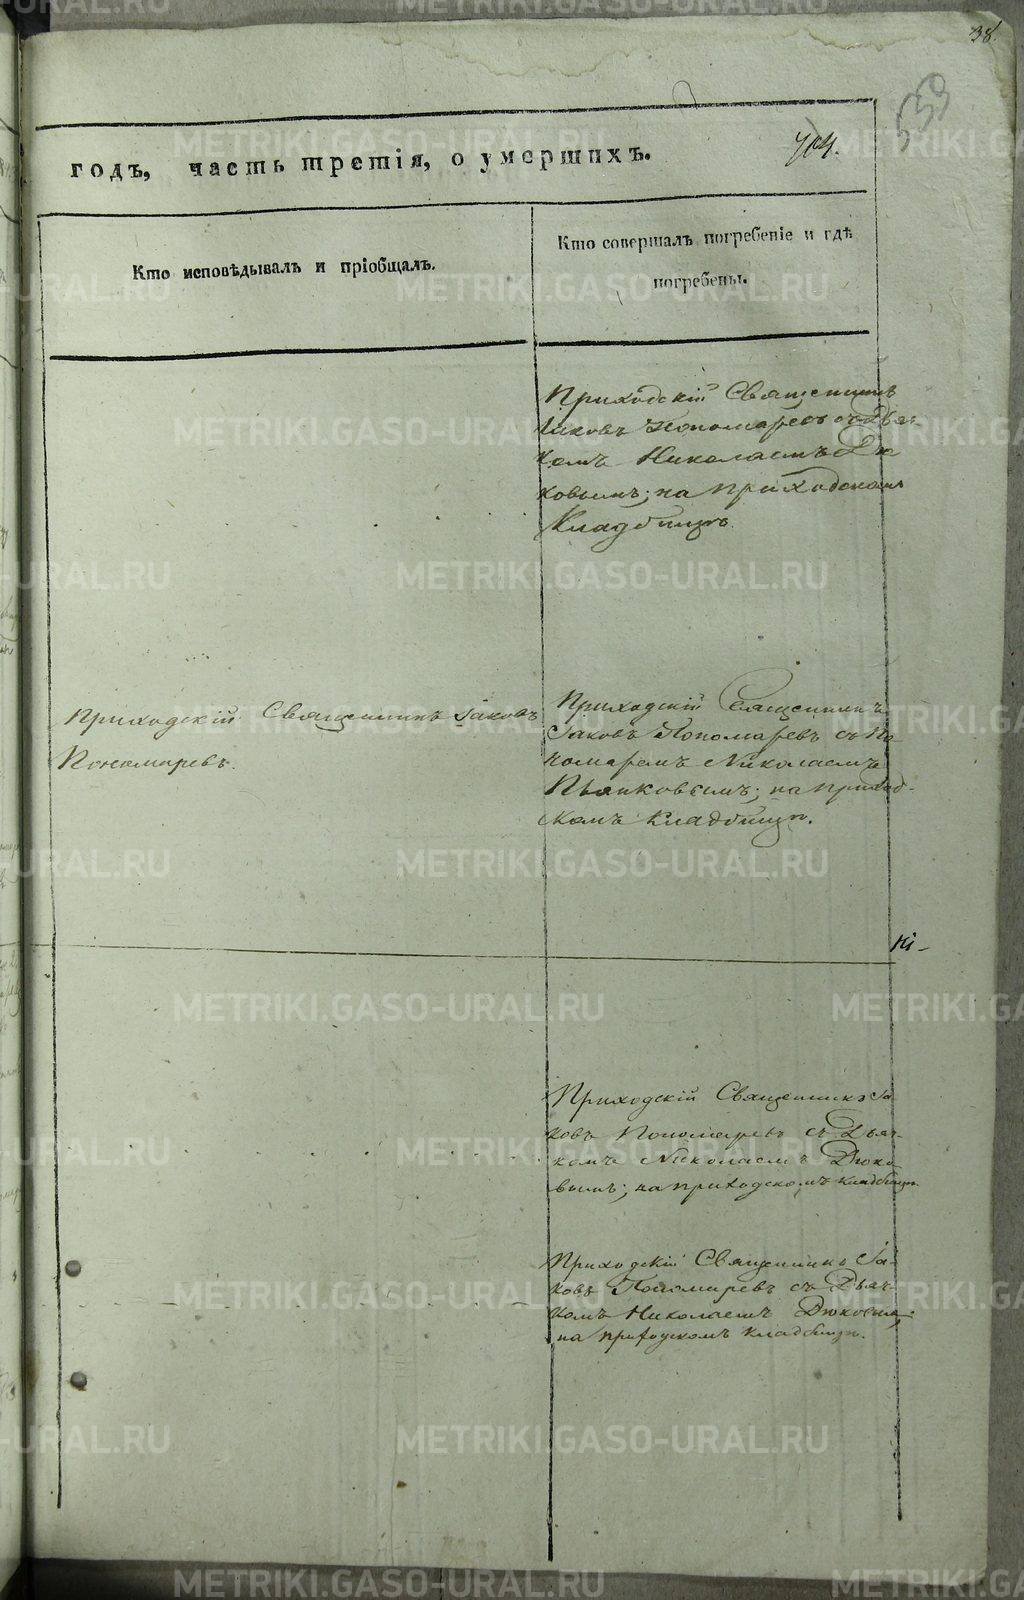 38.
539
годъ, часть третія, о умершихъ.
704.
Кто исповѣдывалъ и пріобщалъ.
Кто совершалъ погребеніе и гдѣ
погребены.
Приходскій Священникъ
Іаковъ Пономаревъ съ Дьяч-
комъ Николаемъ Дю
ковымъ; на приходскомъ
Кладбищѣ.
Приходскій Священникъ Іаковъ
Пономаревъ.
Приходскій Священникъ
Іаковъ Пономаревъ съ По
номаремъ Николаемъ
Пьянковымъ; на приход-
скомъ кладбищѣ.
Приходскій Священникъ Іа
ковъ Пономаревъ съ Дьяч-
комъ Николаемъ Дюко
вымъ; на приходскомъ кладбищѣ
Приходскій Священникъ Іа-
ковъ Пономаревъ съ Дьяч-
комъ Николаемъ Дюковымъ;
на приходскомъ кладбищѣ.
METRIKI.GASO-URAL.RU